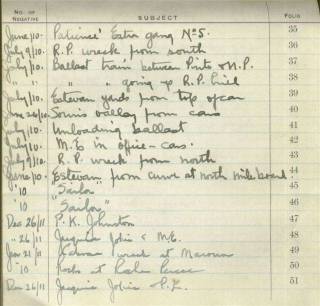 No. OF NEGATIVE SUBJECT FOLIO
June/10- Patience' Extra gang No 5. 35
July 9/10. R.P. wreck from south 36
July/10. Ballast train between Pinto & M.P. 37
" " going up R.P. hill 38
July/10. Estevan yards from top of car 39
June 20/10 Souris valley from cars 40
July/10. Unloading ballast 41
July/10. M.E in office-car. 42
July 9/10 R.P. wreck from north 43
June/10. Estevan from curve at north mile board 44
'10 "Sailor" 45
'10 "Sailor" 46
Dec 26/11 P.K. Johnston 47
" 26/11 & M.E. 48
Jan 21/11 wreck at Macoun 49
'10 at 50
Dec 26/11 51